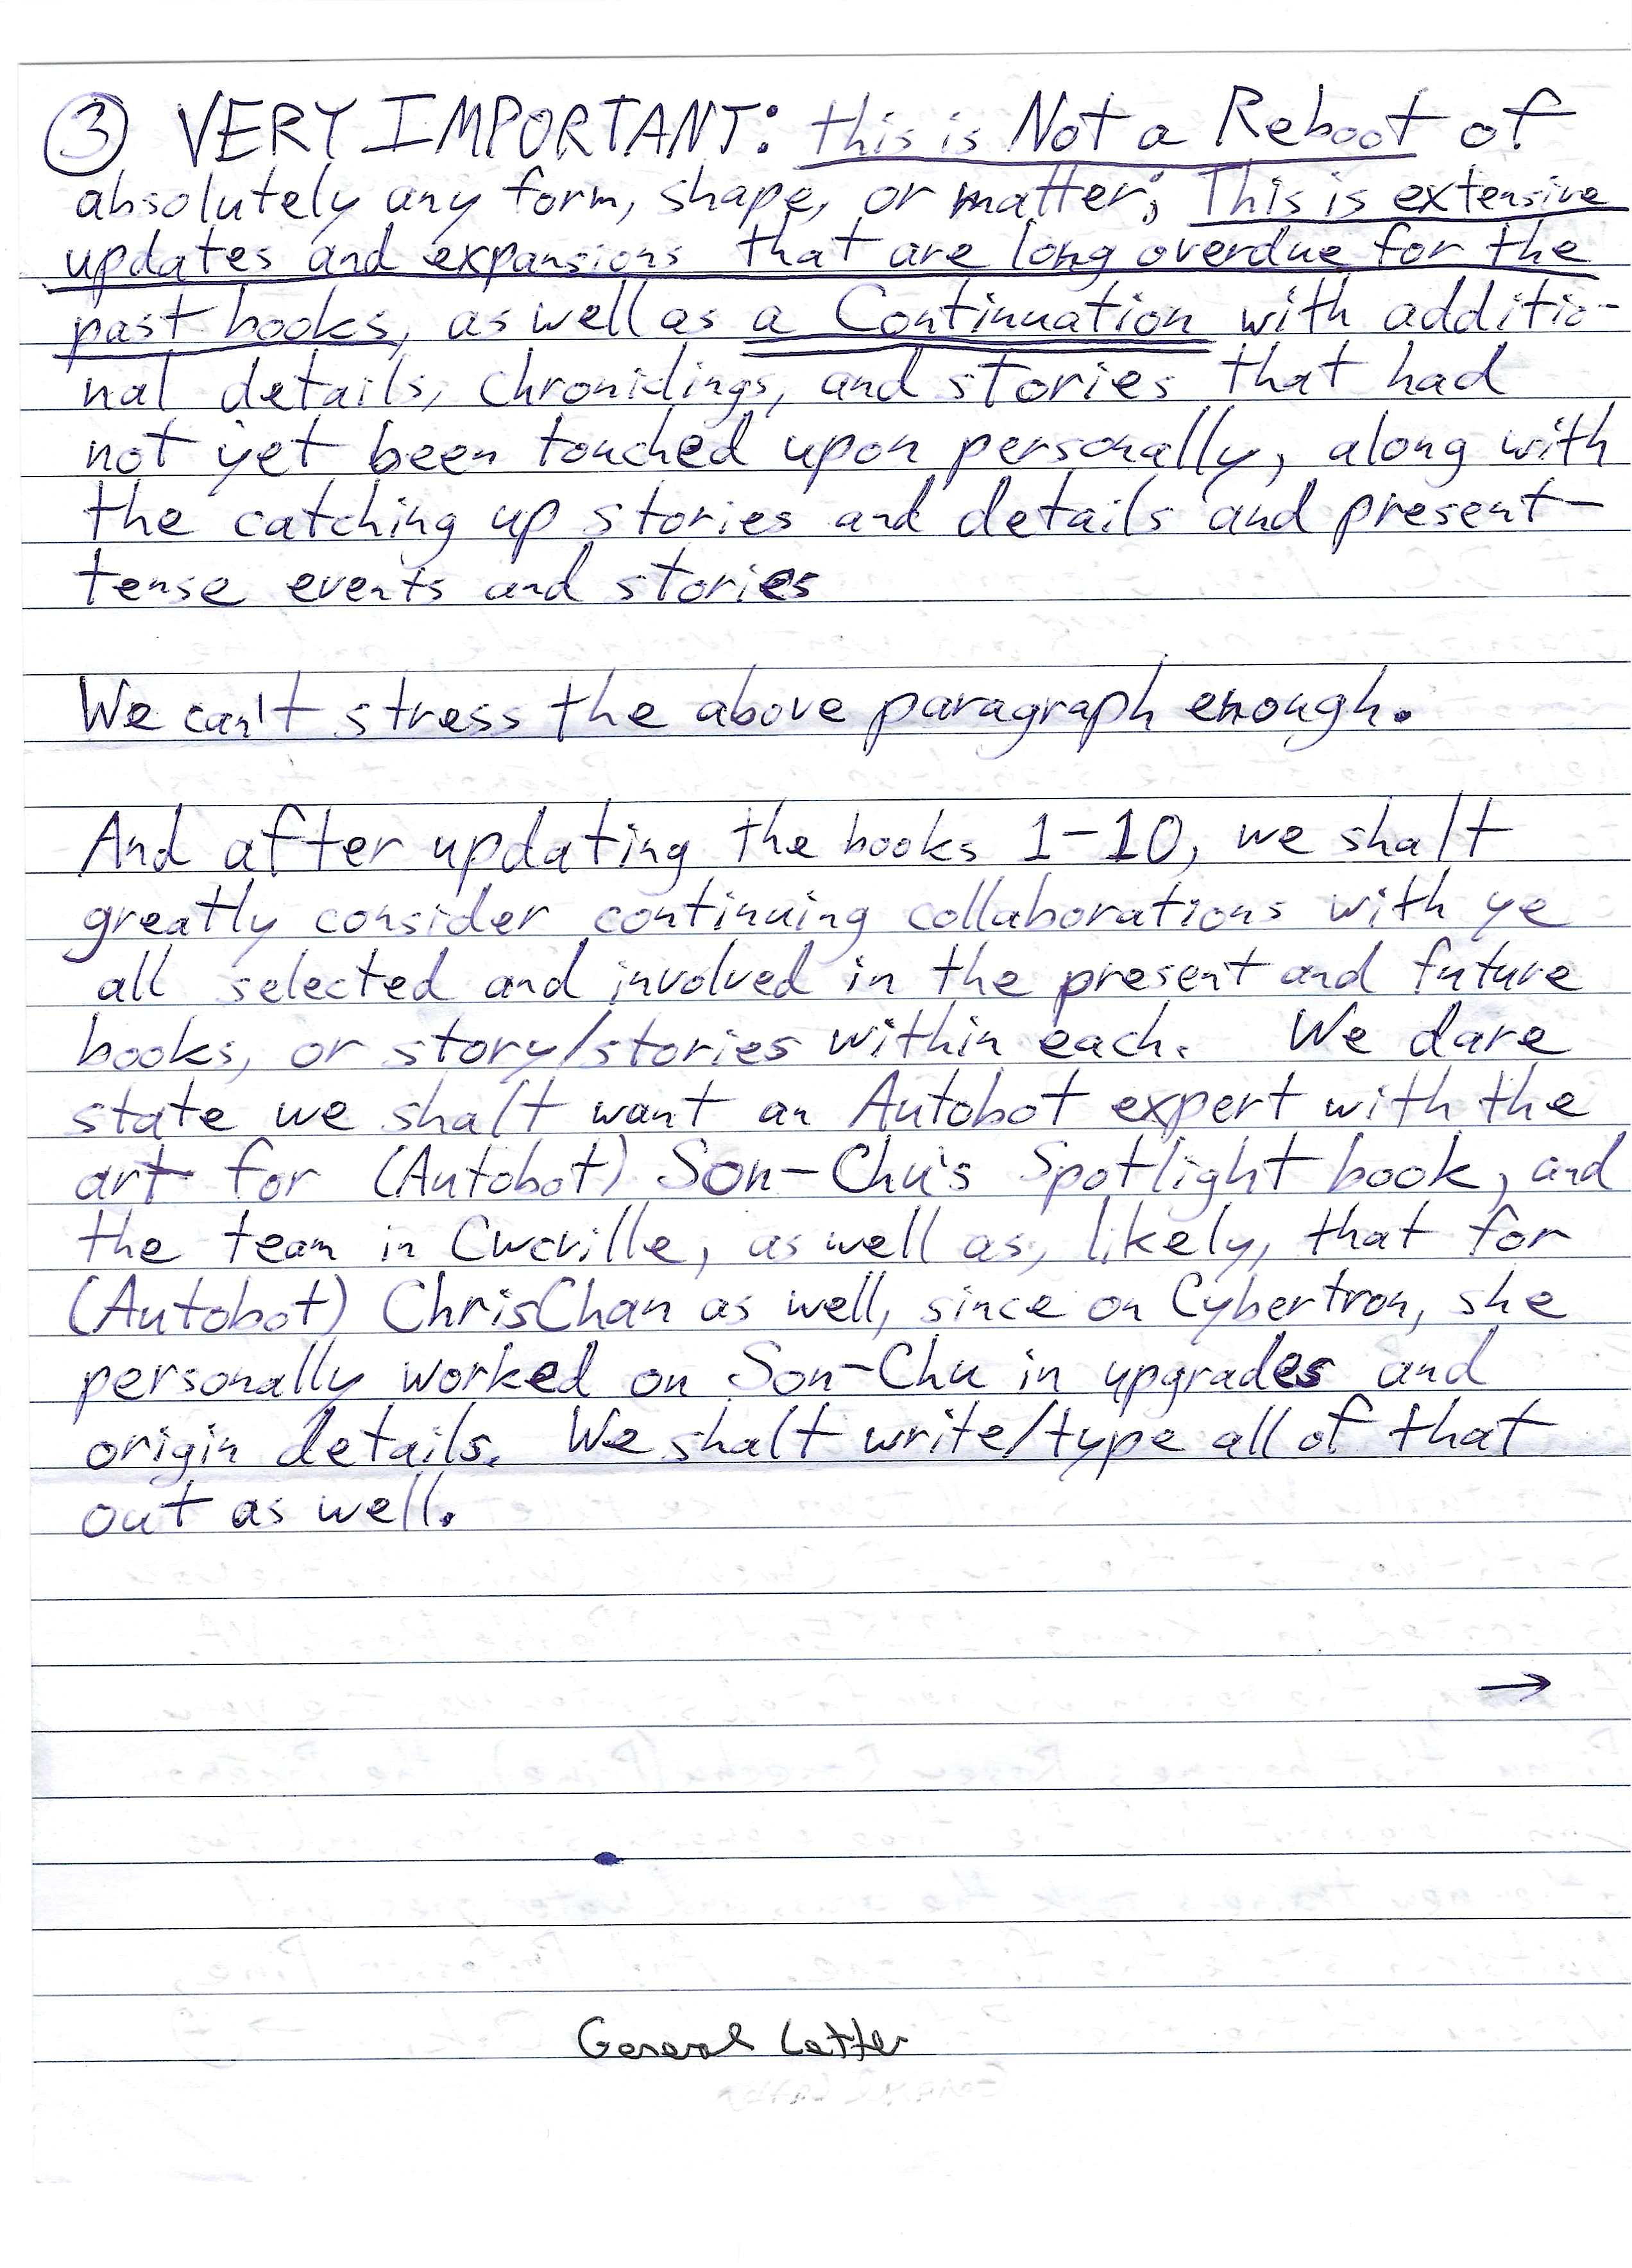 ③ VERY IMPORTANT: this is Not a Reboot of
absolutely any form, shape, or matter; This is extensive
updates and expansions that are long overdue for the
past books, as well as a Continuation with additio-
nal details, chroniclings, and stories that had
not yet been touched upon personally, along with
the catching up stories and details and present-
tense events and stories
We can't stress the above paragraph enough.
And after updating the books 1-10, we shalt
greatly consider continuing collaborations with ye
all selected and involved in the present and future
books, or story/stories within each. We dare
state we shalt want an Autobot expert with the
art for (Autobot) Son-Chu's Spotlight book, and
the team in Cwcville, as well as, likely, that for
(Autobot) ChrisChan as well, since on Cybertron, she
personally worked on Son-Chu in upgrades and
origin details. We shalt write/type all of that
out as well.
→
General Letter